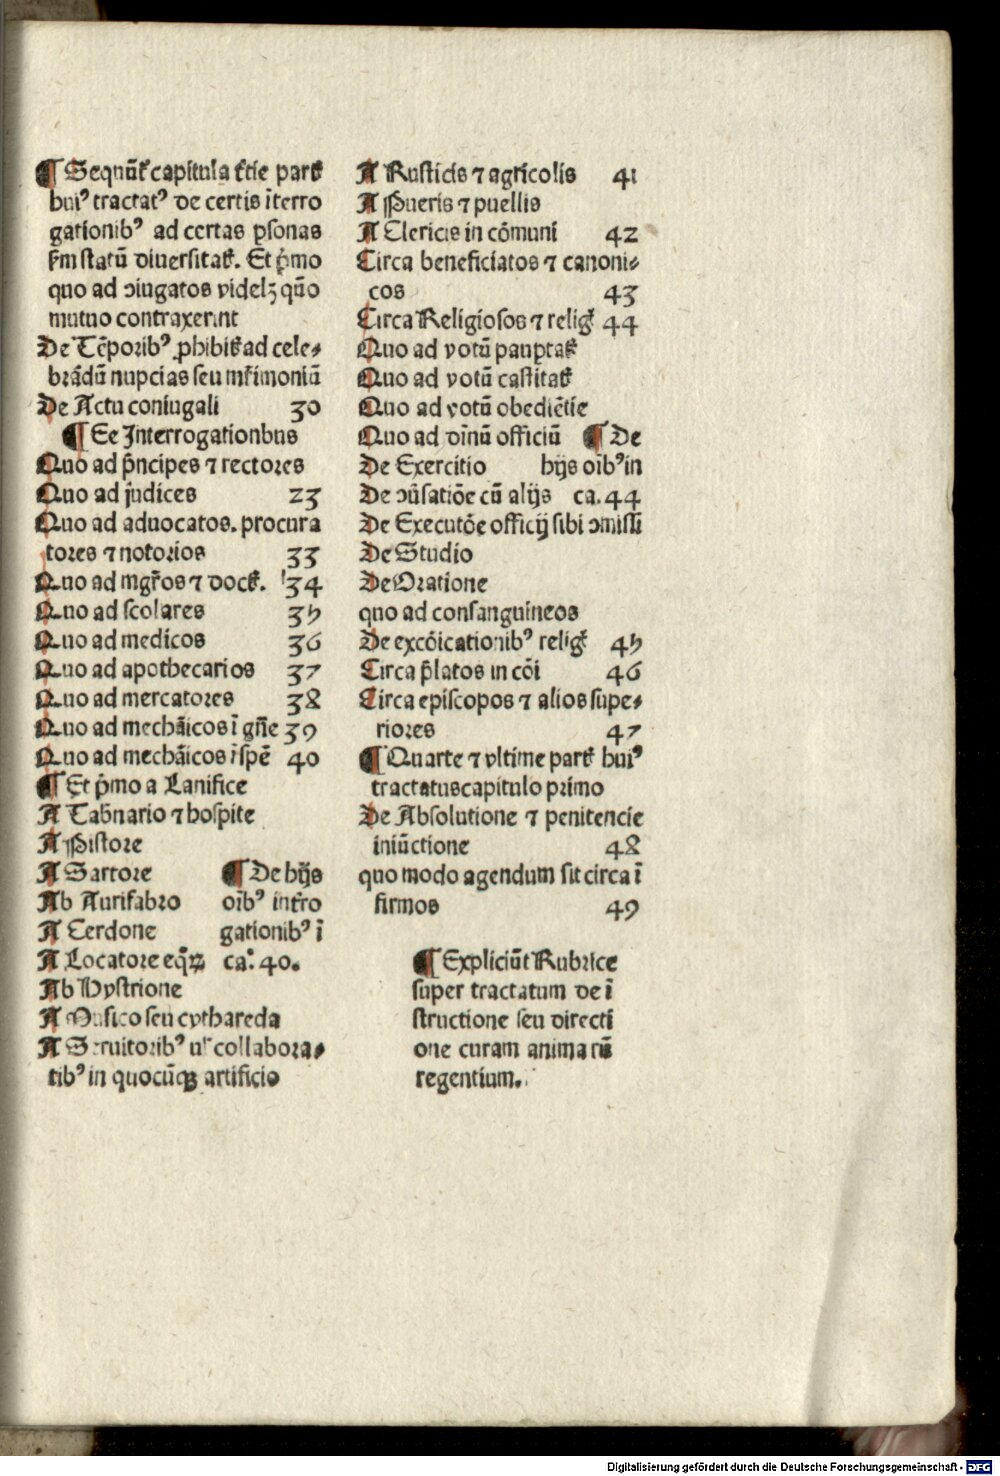 ¶ Sequũt᷑ capitula t᷑tie part᷑
huiꝰ tractatꝰ de certis ĩterro
gationibꝰ ad certas ꝑsonas
ẜm statũ diuersitat᷑. Et p̃mo
quo ad ↄiugatos videlꝫ qũo
mutuo contraxerint
De Tẽporibꝰ ꝓhibit᷑ ad cele⸗
brãdũ nupcias seu mr̃imoniũ
De Actu coniugali 30
¶ Ee Interrogationbus
Quo ad p̃ncipes ⁊ rectores
Quo ad judices 23
Quo ad aduocatos. procura
tores ⁊ notorios 33
Quo ad mgr̃os ⁊ doct᷑. 34
Quo ad scolares 35
Quo ad medicos 36
Quo ad apothecarios 37
Quo ad mercatores 38
Quo ad mechãicos ĩ gñe 39
Quo ad mechãicos ĩ spẽ 40
¶ Et p̃mo a Lanifice
A Tab̃nario ⁊ hospite
A Pistore
A Sartore ¶ De hijs
Ab Aurifabro oĩbꝰ int̃ro
A Cerdone gationibꝰ ĩ
A Locatore eq̃ꝝ ca. 40.
Ab Hystrione
A Musico seu cythareda
A Seruitoribꝰ ul᷑ collabora⸗
tibꝰ in quocũqꝫ artificio
A Rusticis ⁊ agricolis 41
A Pueris ⁊ puellis
A Clericis in cõmuni 42
Circa beneficiatos ⁊ canoni⸗
cos 43
Circa Religiosos ⁊ relig᷑ 44
Quo ad votũ pauꝑtat᷑
Quo ad votũ castitat᷑
Quo ad votũ obediẽtie
Quo ad diñu officiũ ¶ De
De Exercitio hijs oĩbꝰ in
De ↄũsatiõe cũ alijs ca. 44
De Executõe officij sibi ↄmissi
De Studio
De Oratione
quo ad consanguineos
De excõicationibꝰ relig᷑ 45
Circa p̃latos in cõi 46
Circa episcopos ⁊ alios supe⸗
riores 47
¶ Quarte ⁊ vltime part᷑ huiꝰ
tractatus capitulo primo
De Absolutione ⁊ penitencie
iniũctione 48
quo modo agendum sit circa ĩ
firmos 49
¶ Expliciũt Rubrice
super tractatum de ĩ
structione seu directi
one curam animarũ
regentium.
Digitalisierung gefördert durch die Deutsche Forschungsgemeinschaft - DFG